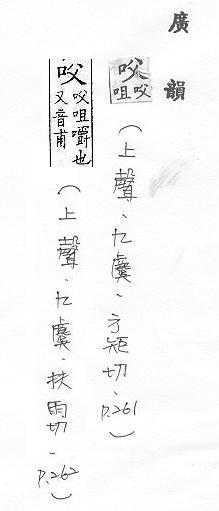 廣韻
㕮㕮咀(上聲、九麌、方矩切、p.261)
㕮㕮咀嚼也又音甫(上聲、九麌、扶雨切、p.262)